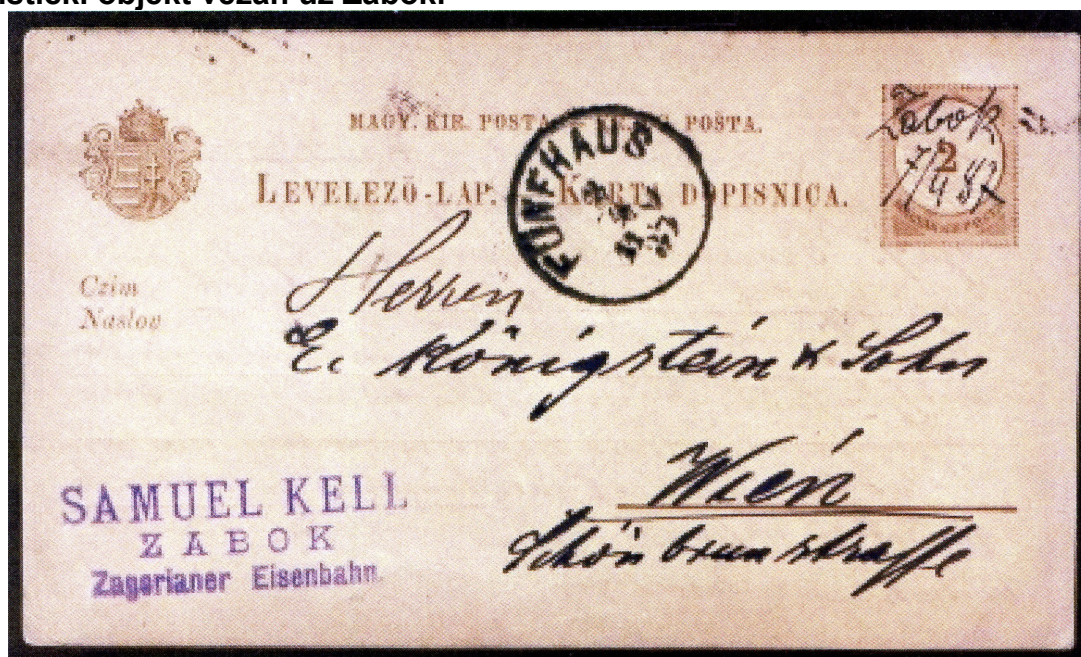 objekt vezan uz Zabok.
MAGY. KIR. POSTA POŠTA.
LEVELEZŐ-LAP. KORTA DOPISNICA.
Zabok
7/4 87
2
FÜNFHAUS
Czim
Naslov
Herren
E. Königstein & Sohn
Wien
Schönbrunstraße
SAMUEL KELL
ZABOK
Zagorianer Eisenbahn.